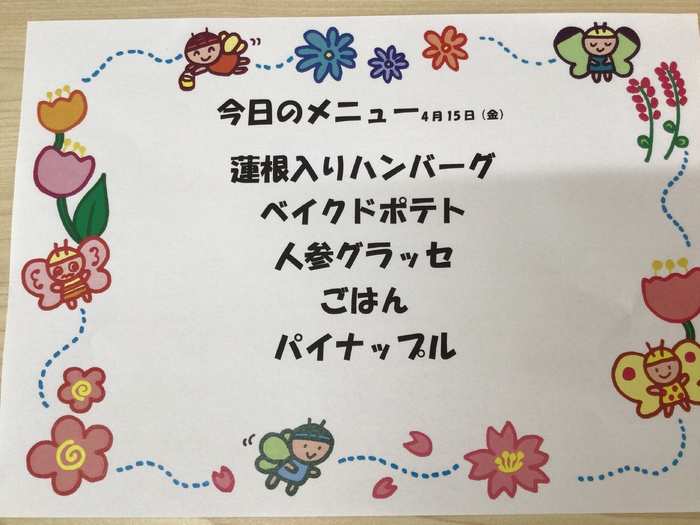 今日のメニュー4月15日(金)
蓮根入りハンバーグ
ベイクドポテト
人参グラッセ
ごはん
パイナップル